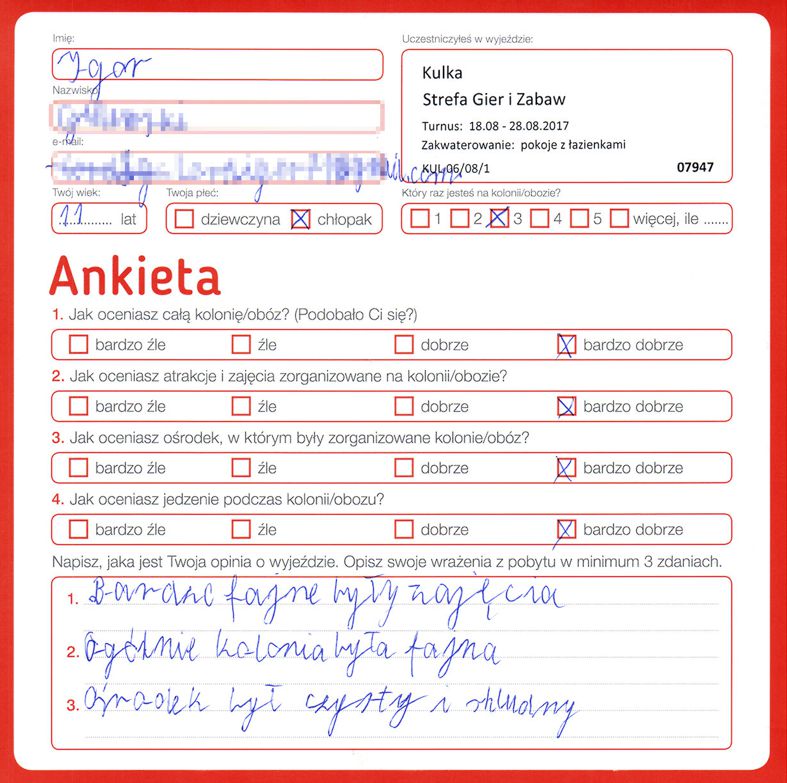 Imię:
Igor
Nazwisko:
e-mail:
Twój wiek:
11 lat
Twoja płeć:
dziewczyna chłopak
Uczestniczyłeś w wyjeździe:
Kulka
Strefa Gier i Zabaw
Turnus: 18.08 - 28.08.2017
Zakwaterowanie: pokoje z łazienkami
KUL06/08/1 07947
Który raz jesteś na kolonii/obozie?
1 2 3 4 5 więcej, ile .......
Ankieta
1. Jak oceniasz całą kolonię/obóz? (Podobało Ci się?)
bardzo źle źle dobrze bardzo dobrze
2. Jak oceniasz atrakcje i zajęcia zorganizowane na kolonii/obozie?
bardzo źle źle dobrze bardzo dobrze
3. Jak oceniasz ośrodek, w którym były zorganizowane kolonie/obóz?
bardzo źle źle dobrze bardzo dobrze
4. Jak oceniasz jedzenie podczas kolonii/obozu?
bardzo źle źle dobrze bardzo dobrze
Napisz, jaka jest Twoja opinia o wyjeździe. Opisz swoje wrażenia z pobytu w minimum 3 zdaniach.
1. Bardzo fajne były zajęcia
2. Ogólnie kolonia była fajna
3. Ośrodek był czysty i shludny